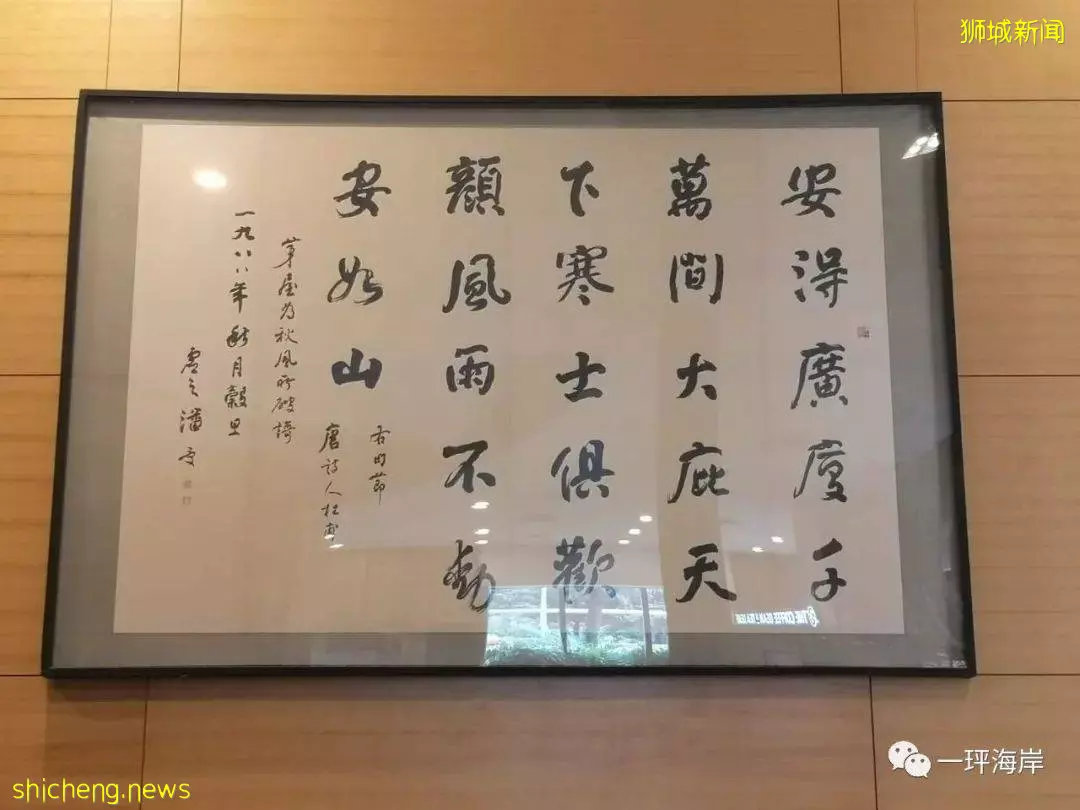 狮城新闻
安得廣廈千
萬間大庇天
下寒士俱歡
顏風雨不動
安如山
右 節
唐詩人杜甫
茅屋为秋風所破詩
一九八八年秋月穀旦
虛之潘受
THE COFFEE BEAN
一坪海岸
shicheng.news